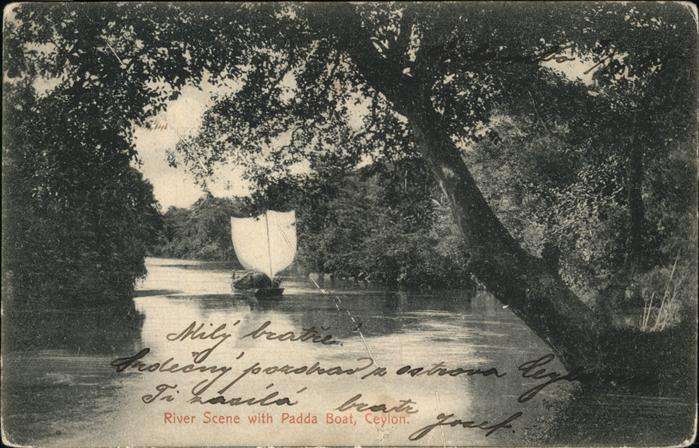 Milý bratře.
Srdečný pozdrav z ostrova Ceylo
Ti zasílá bratr Josef.
River Scene with Padda Boat, Ceylon.